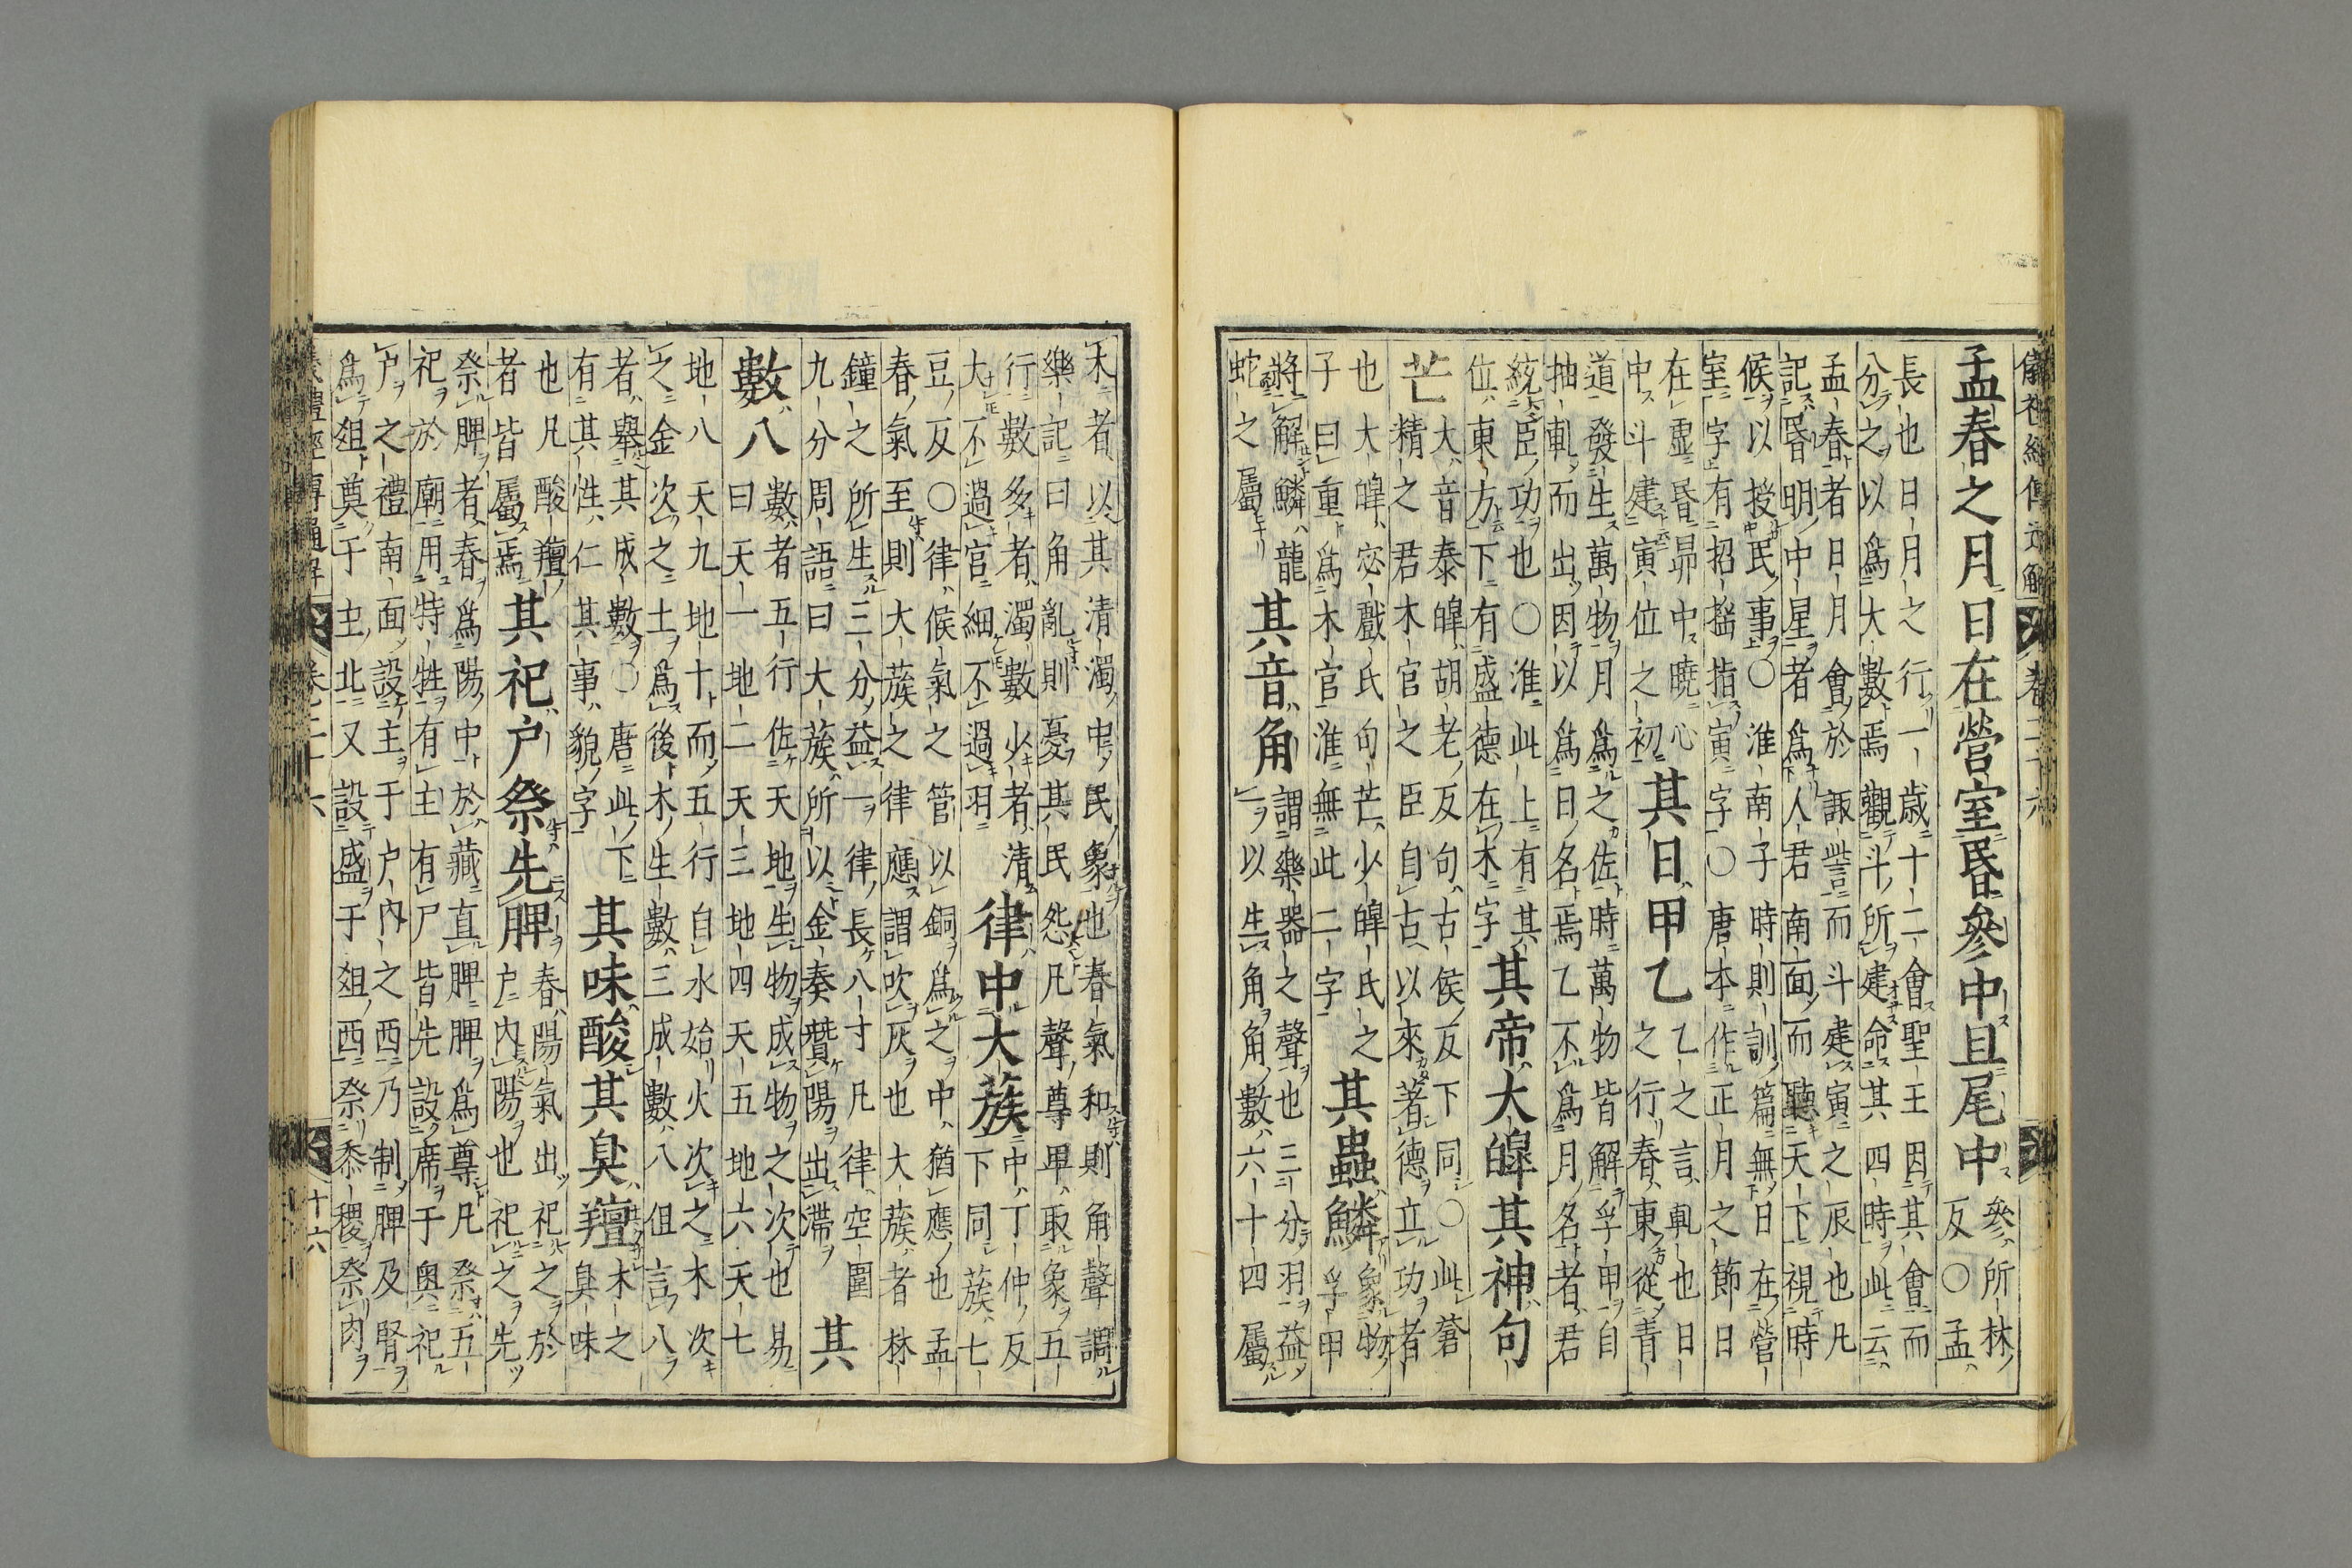 儀禮經傳通解 卷二十六
孟春之月日在營室昏參中旦尾中
參所林
反○孟
長也日月之行一歳十二會聖王因其會而
分之以爲大數焉觀斗所建命其四時此云
孟春者日月會於諏訾而斗建寅之辰也凡
記昏明中星者爲人君南面而聽天下視時
候以授民事○淮南子時則訓篇無日在營
室字有招搖指寅字○唐本作正月之節日
在虛昏昴中曉心
中斗建寅位之初
其日甲乙
乙之言軋也日
之行春東從青
道發生萬物月爲之佐時萬物皆解孚甲自
抽軋而出因以爲日名焉乙不爲月名者君
統臣功也○淮此上有其
位東方下有盛德在木字
其帝大皥其神句
芒
大音泰皥胡老反句古侯反下同○此蒼
精之君木官之臣自古以來著德立功者
也大皥宓戲氏句芒少皥氏之
子曰重爲木官淮無此二字
其蟲鱗
象物
孚甲
將解鱗龍
蛇之屬
其音角
謂樂器之聲也三分羽益
一以生角角數六十四屬
木者以其清濁中民象也春氣和則角聲調
樂記曰角亂則憂其民怨凡聲尊卑取象五
行數多者濁數少者清
大不過宫細不過羽
律中大蔟
中丁仲反
下同蔟七
豆反○律候氣之管以銅爲之中猶應也孟
春氣至則大蔟之律應謂吹灰也大蔟者林
鐘之所生三分益一律長八寸凡律空圍
九分周語曰大蔟所以金奏贊陽出滯
其
數八
數者五行佐天地生物成物之次也易
曰天一地二天三地四天五地六天七
地八天九地十而五行自水始火次之木次
之金次之土爲後木生數三成數八但言八
者舉其成數○唐此下
有其性仁其事貌字
其味酸其臭羶
木之
臭味
也凡酸羶
者皆屬焉
其祀户祭先脾
春陽氣出祀之於
户内陽也祀之先
祭脾者春爲陽中於藏直脾脾爲尊凡祭五
祀於廟用特牲有主有尸皆先設席于奥祀
户之禮南面設主于户内之西乃制脾及腎
爲俎奠于主北又設盛于俎西祭黍稷祭肉
儀禮經傳通解 卷二十六 十六